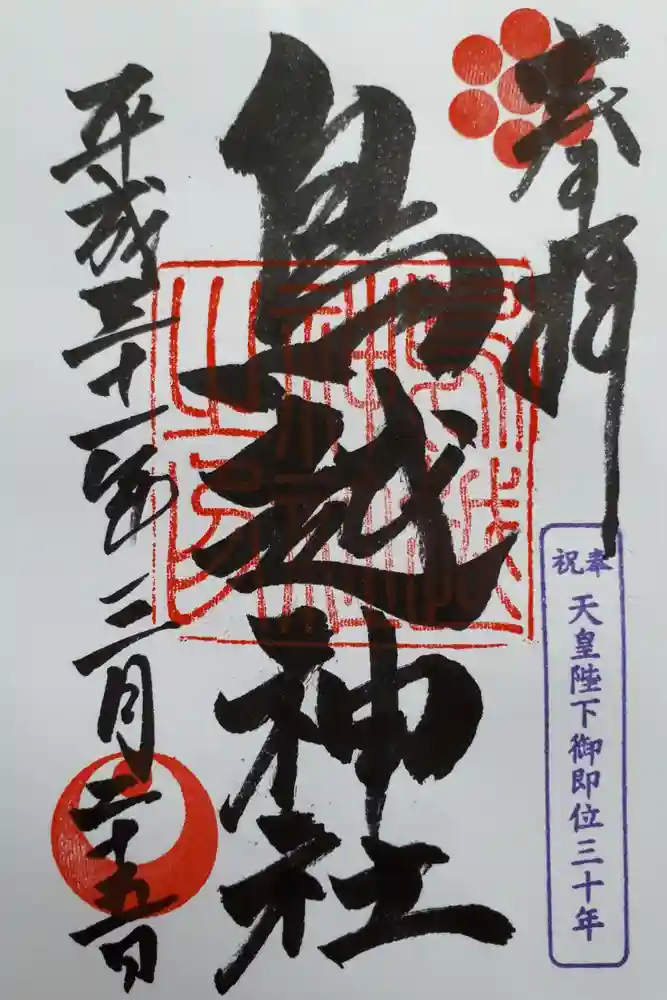 奉拝
奉祝
天皇陛下御即位三十年
鳥越神社
平成三十一年三月二十五日